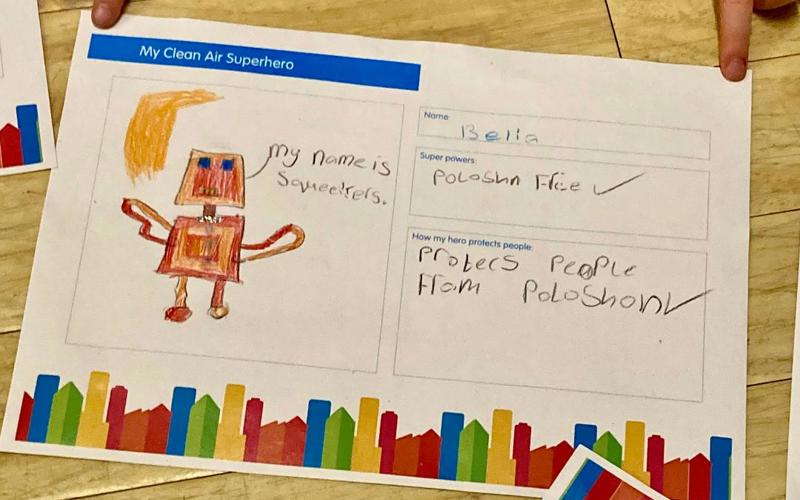 My Clean Air Superhero
my name is
Squeekers.
Name:
Bella
Super powers:
Poloshn Free
How my hero protects people:
Protecs People
From Poloshon